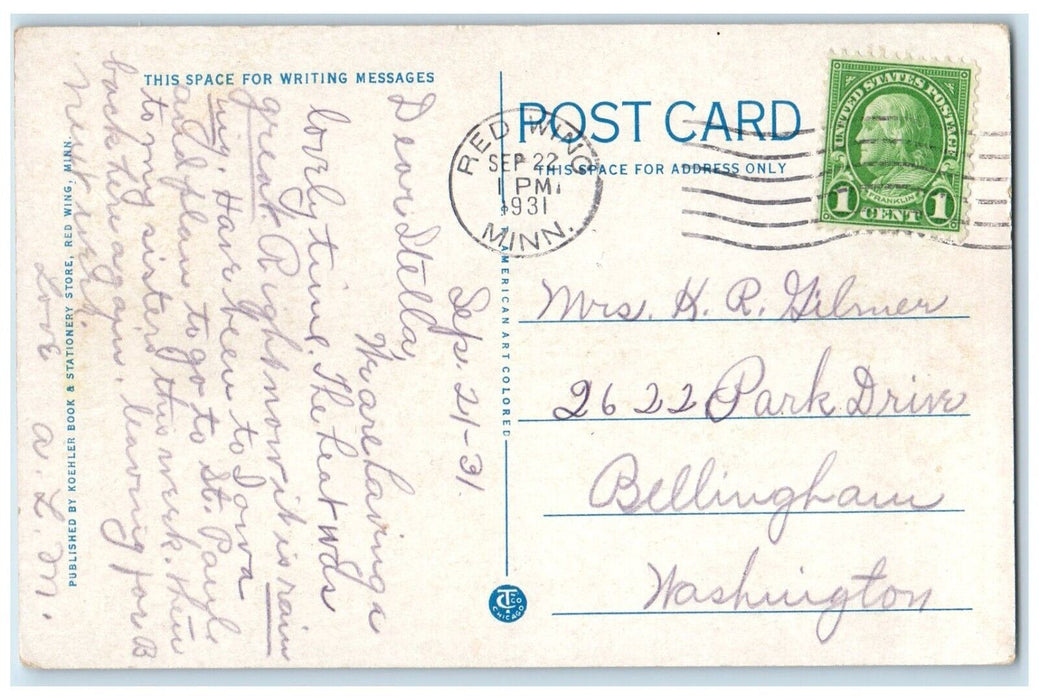 THIS SPACE FOR WRITING MESSAGES
Sep. 21-31.
Dear Stella,
We are having a
lovely time. The heat was
great. Right now it is rain
ing. Have been to Iowa
and plan to go to St. Paul
to my sisters this week. then
back here again. leaving for B.
next week.
Love
a. L. M.
PUBLISHED BY KOEHLER BOOK & STATIONERY STORE, RED WING, MINN.
AMERICAN ART COLORED
CT CO
CHICAGO
POST CARD
THIS SPACE FOR ADDRESS ONLY
RED WING
SEP 22
1 PM
1931
MINN.
UNITED STATES POSTAGE
FRANKLIN
1 CENT 1
Mrs. K. R. Gilmer
2622 Park Drive
Bellingham
Washington